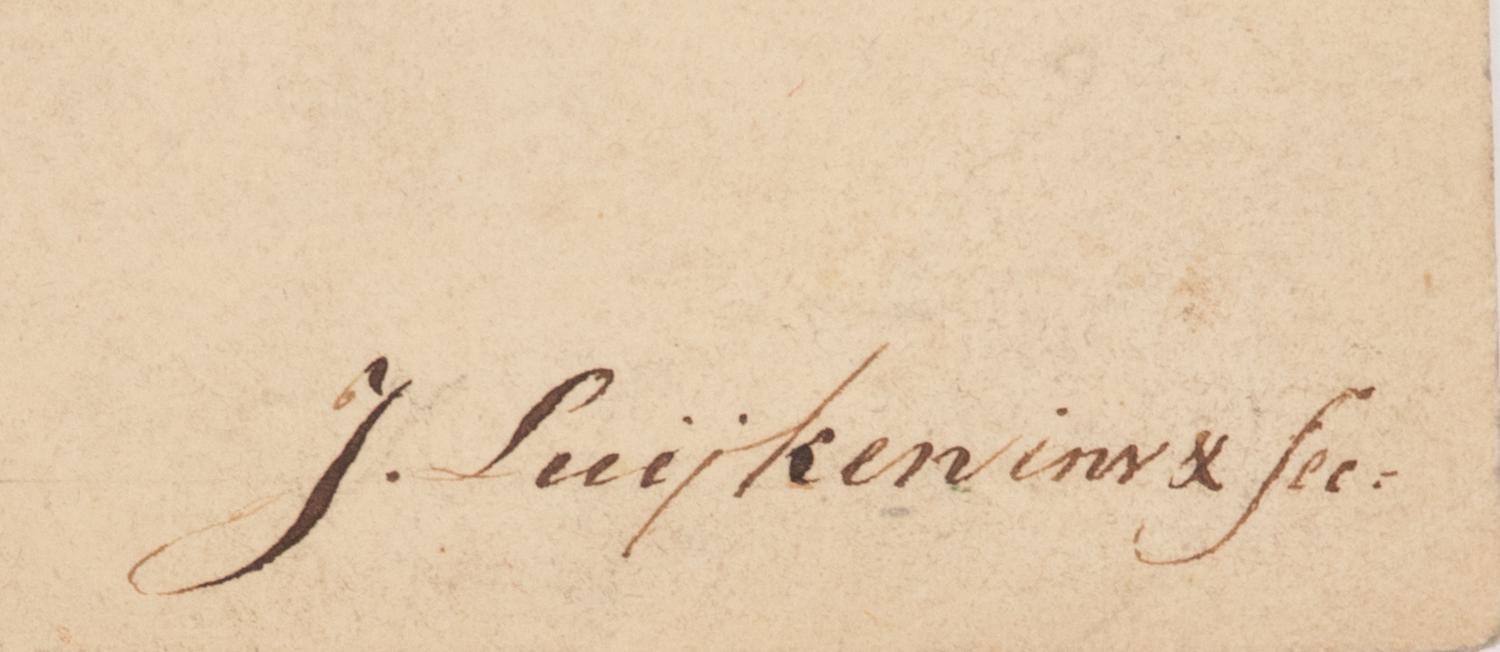 J. Luijken inv & fec: